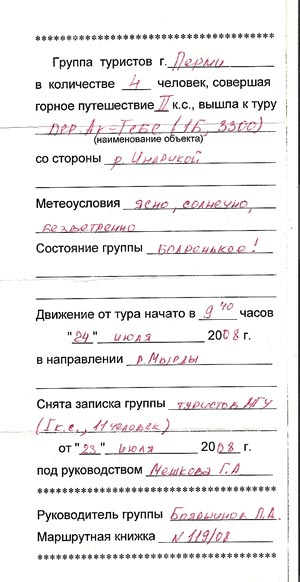 ************************************
Группа туристов г. Перми
в количестве 4 человек, совершая
горное путешествие II к.с., вышла к туру
пер. Ак-Тебе (1Б, 3300)
(наименование объекта)
со стороны р. Индрикой
Метеоусловия ясно, солнечно,
безветренно
Состояние группы бодренькое!
Движение от тура начато в 9 40 часов
"24" июля 2008 г.
в направлении р. Мырды
Снята записка группы туристов МГУ
(I к.с., 11 человек)
от "23" июля 2008 г.
под руководством Мешкова Г.А
************************************
Руководитель группы Бояршинов П.А.
Маршрутная книжка N 119/08
************************************